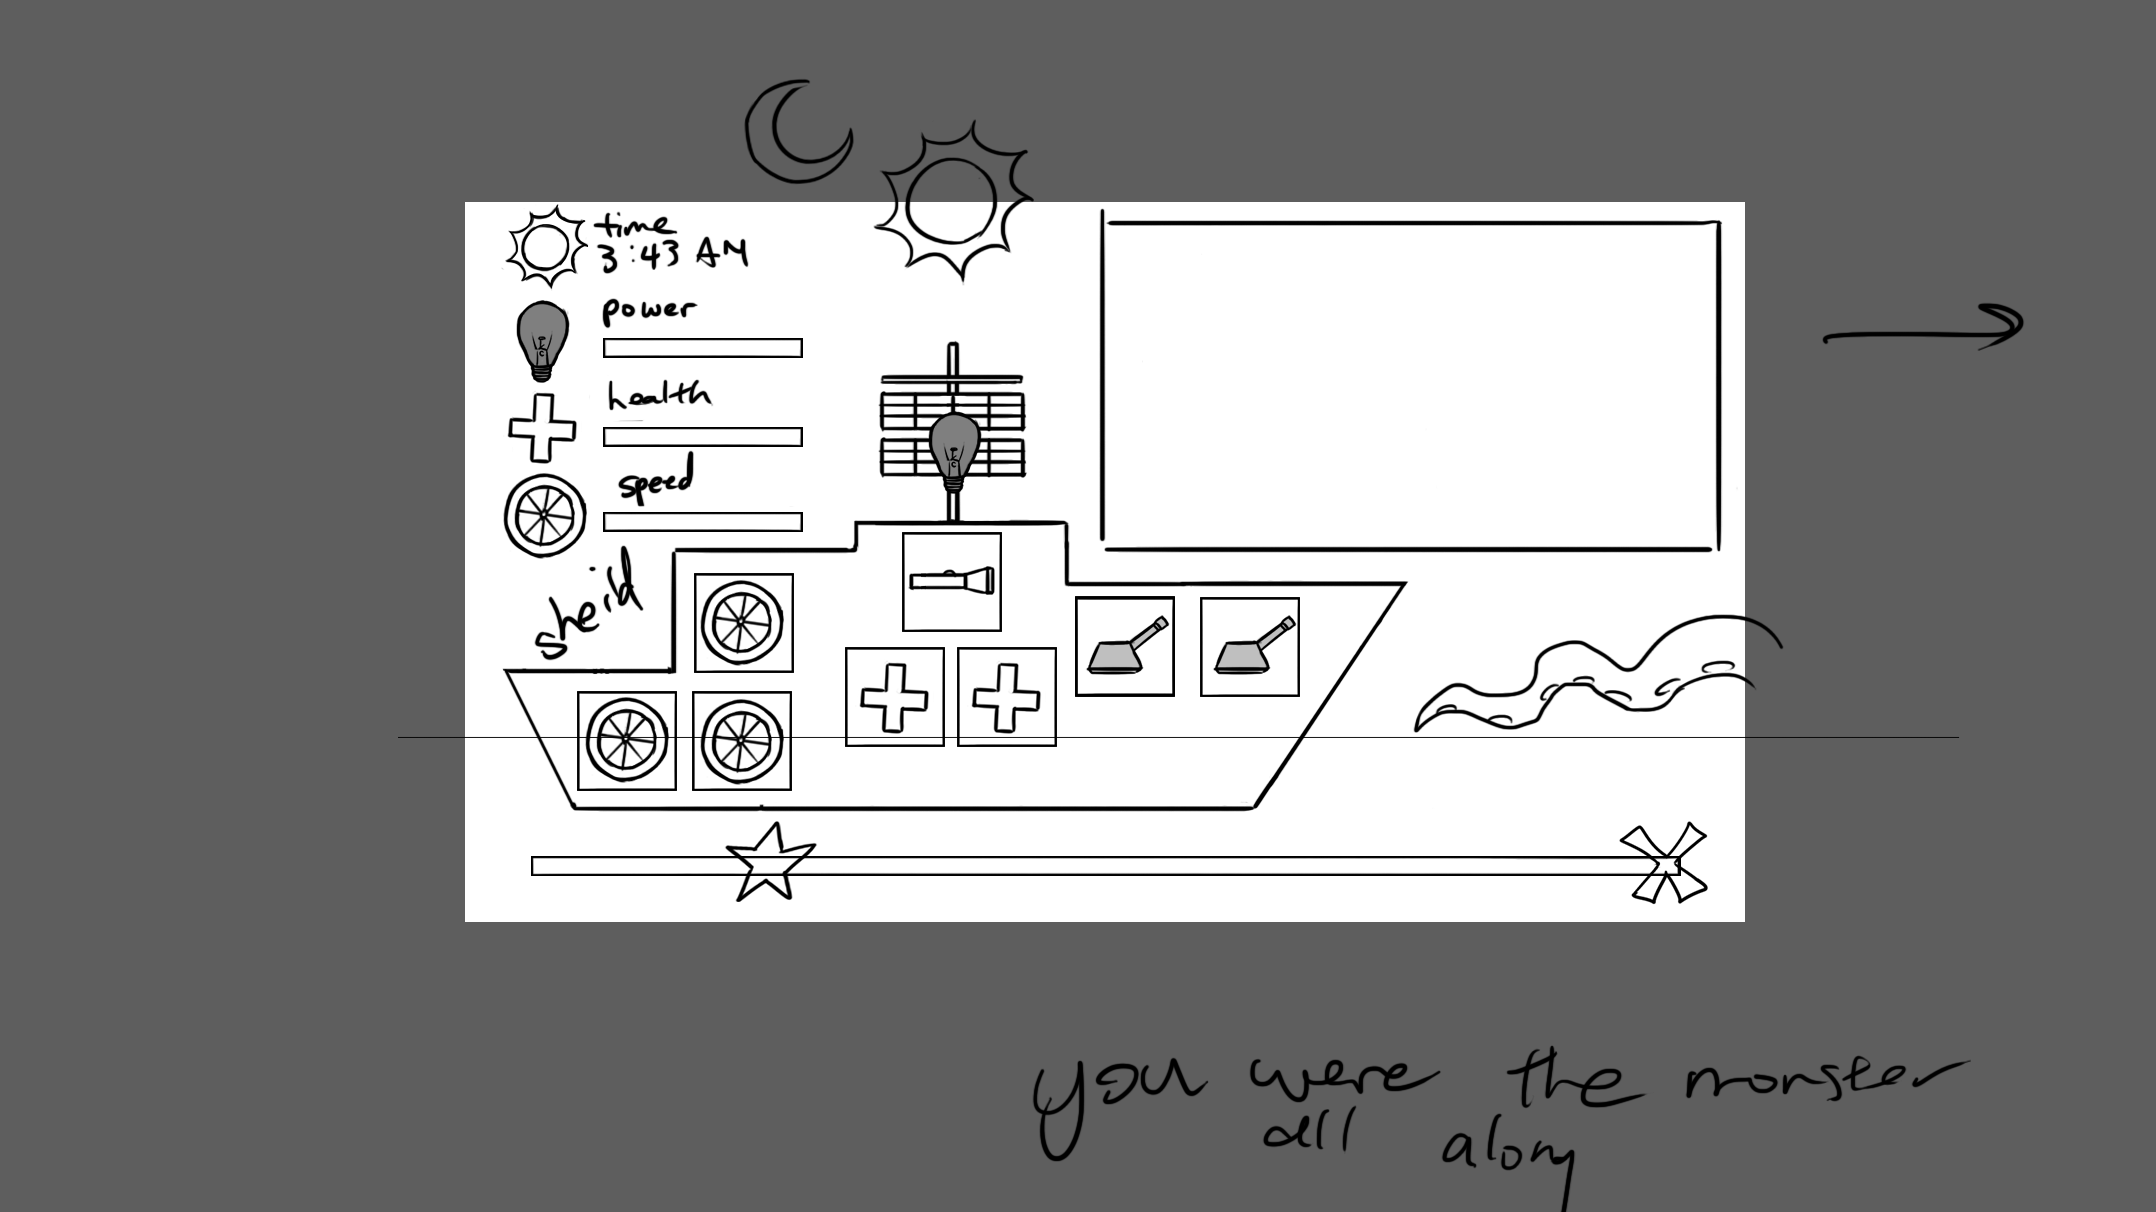 time
3:43 AM
power
health
speed
sheild
you were the monster
all along